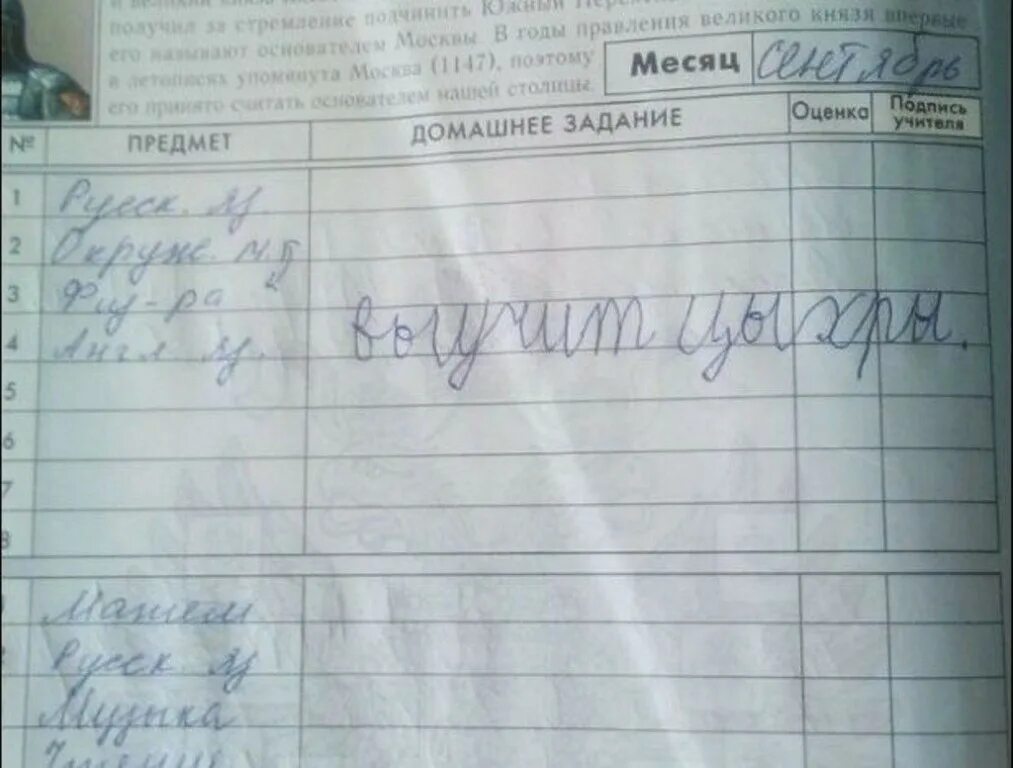 получил за стремление подчинить Южный
его называют основателем Москвы. В годы правления великого князя впервые
в летописях упомянута Москва (1147), поэтому
его принято считать основателем нашей столицы.
Месяц Сентябрь
№ ПРЕДМЕТ ДОМАШНЕЕ ЗАДАНИЕ Оценка Подпись учителя
1 Русск. яз.
2 Окруж. м.
3 Физ-ра
4 Англ яз. выучит цыхры.
5
6
7
8
Матем
Русск яз
Музыка
Чтение